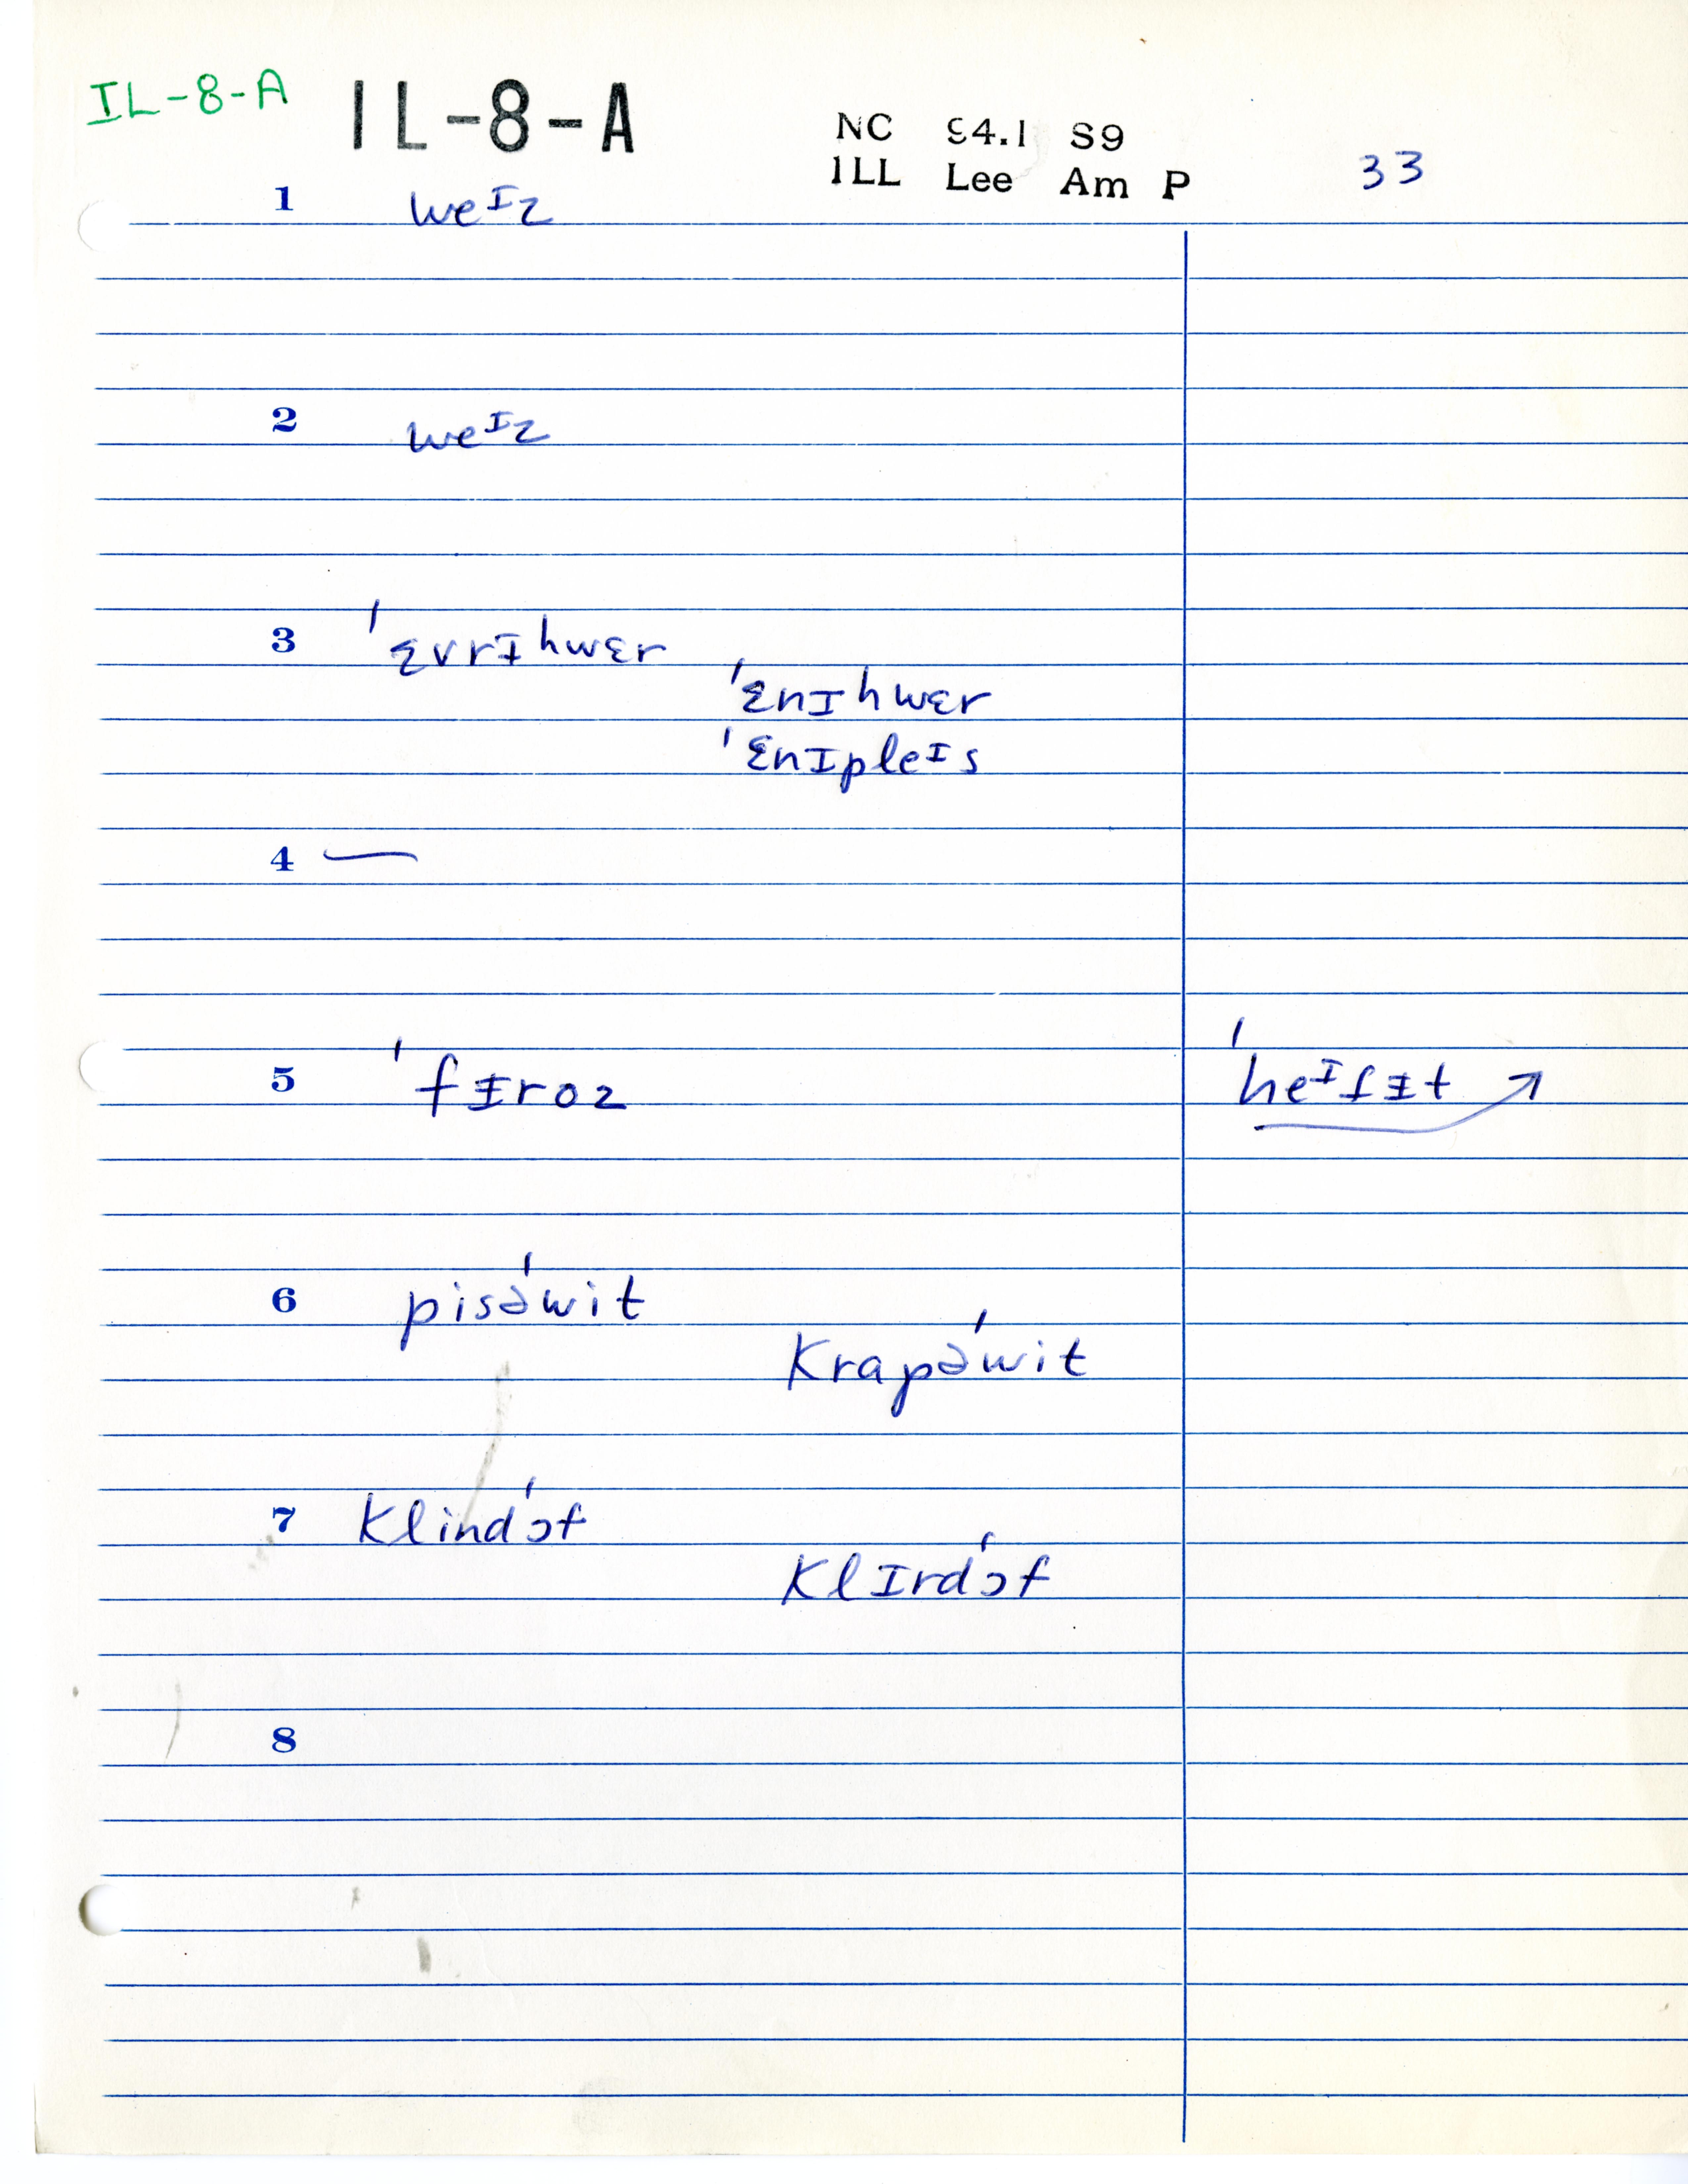 IL-8-A IL-8-A
NC 94.1 S9
ILL Lee Am P 33
1 weᴵz
2 weᴵz
3 ˈɛvrɪhwɛr
ˈɛnɪhwɛr
ˈɛnɪpleᴵs
4 —
5 ˈfɨroz ˈheᴵfɨt ↗
6 pisəˈwit
Krapəˈwit
7 Klindˈɔf
Klɪrdˈɔf
8